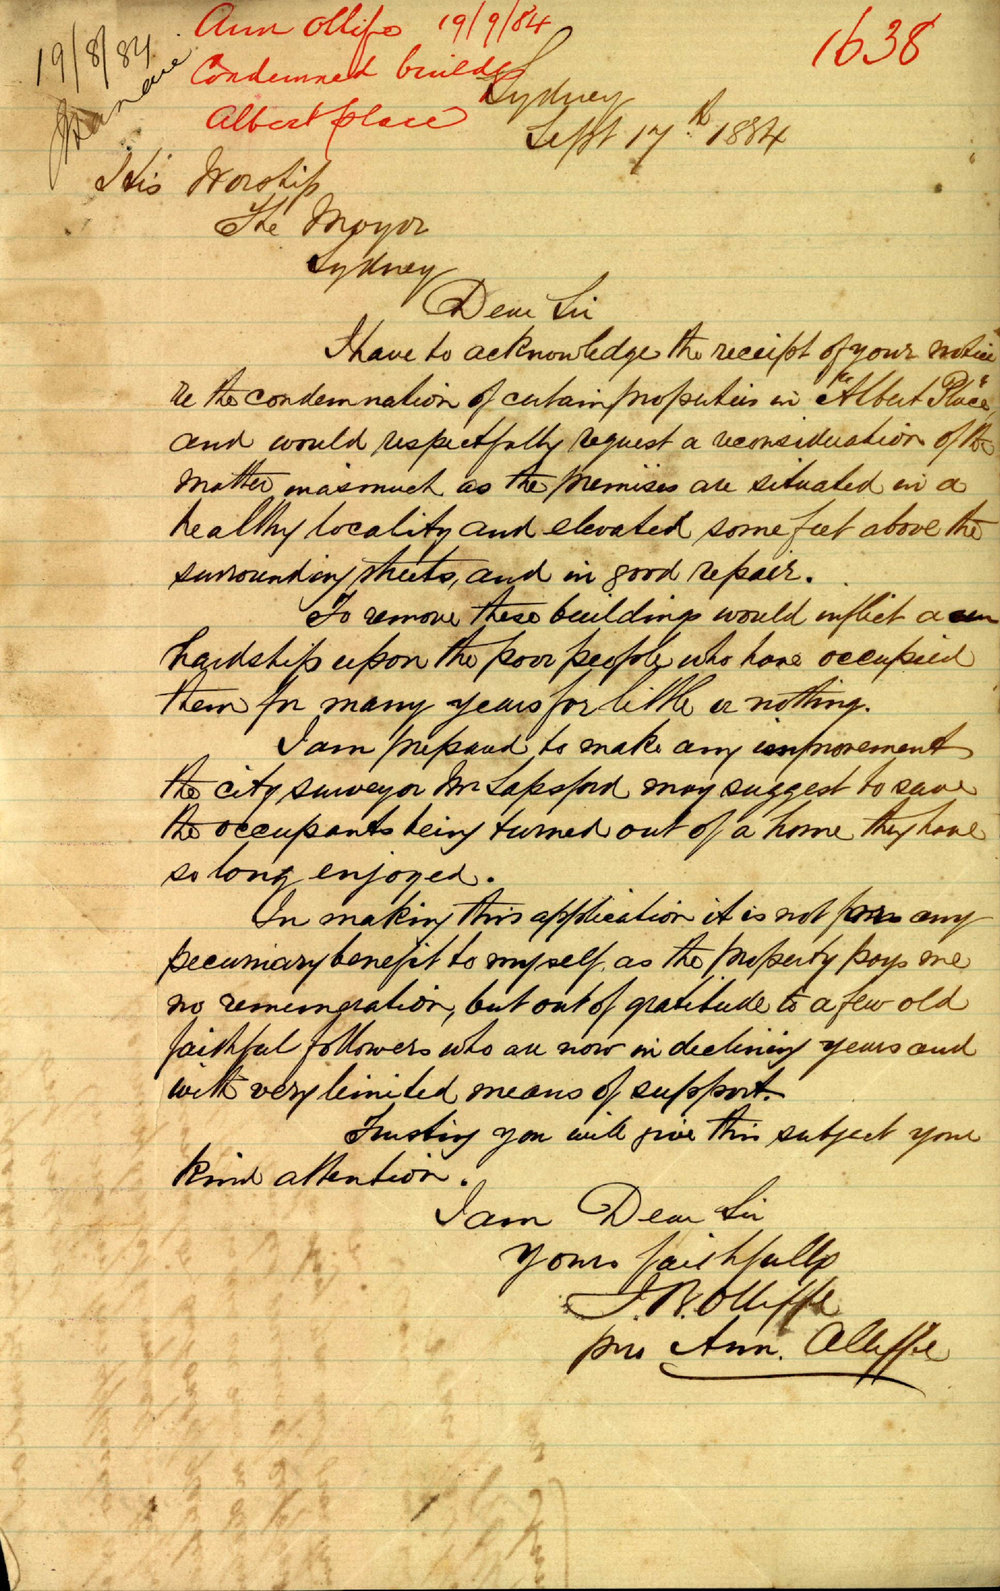 19/8/84
Ann Olliffe 19/9/84
Condemned buildgs
Albert place
1638
Sydney
Sept 17th 1884
His Worship
The Mayor
Sydney
Dear Sir
I have to acknowledge the receipt of your notice
re the condemnation of certain properties in "Albert Place"
and would respectfully request a reconsideration of the
matter inasmuch as the premises are situated in a
healthy locality and elevated some feet above the
surrounding streets, and in good repair.
To remove these buildings would inflict a
hardship upon the poor people who have occupied
them for many years for little or nothing.
I am prepared to make any improvement
the city surveyor Mr Sapsford may suggest to save
the occupants being turned out of a home they have
so long enjoyed.
In making this application it is not for any
pecuniary benefit to myself, as the property pays me
no remuneration, but out of gratitude to a few old
faithful followers who are now in declining years and
with very limited means of support.
Trusting you will give this subject your
kind attention.
I am Dear Sir
Yours faithfully
J. R. Olliffe
pro Ann. Olliffe